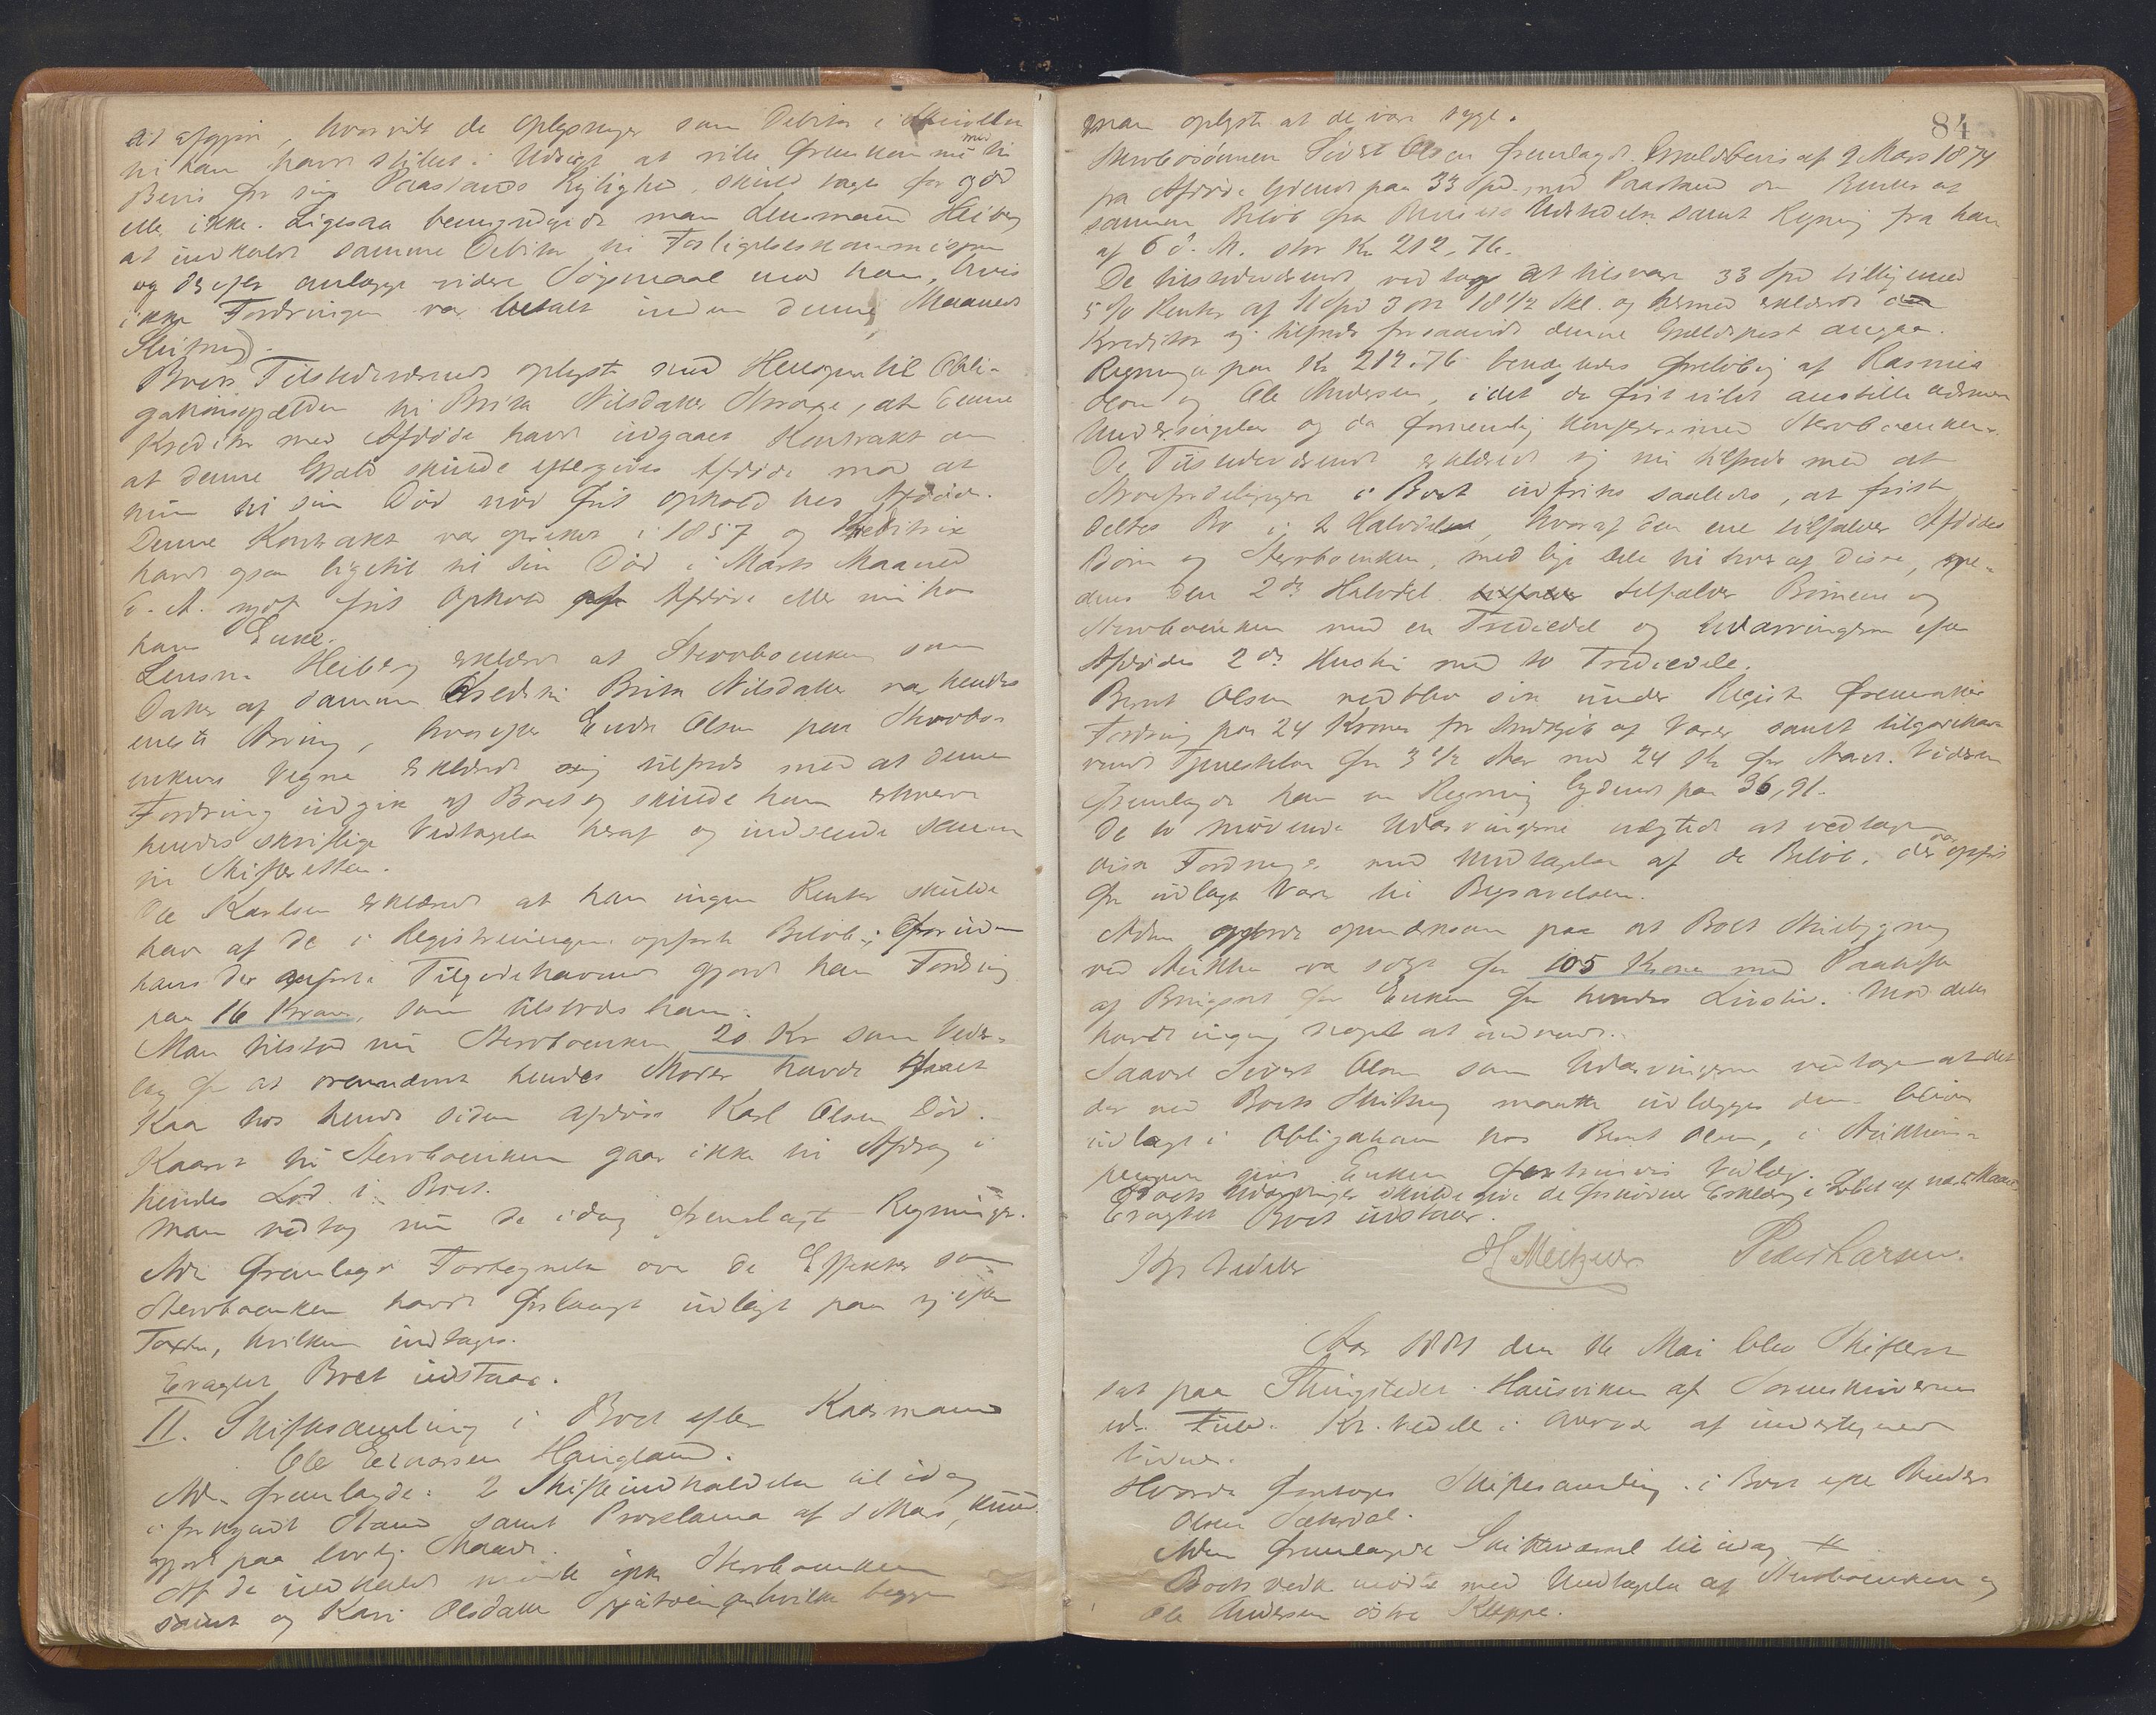 at afgjøre, hvorvidt de Oplysninger som Debitor i
til kan have
Bevis for sin Paastands Rigtighed, skulde tages for god
eller ikke. Ligesaa bemyndigede man Lensmand Heiberg
at indkalde samme Debitor til Forligelseskommissjon
og derefter anlægge videre Søgsmaal mod ham, hvis
ikke Fordringen var betalt inden denne Maaneds
Slutning.
Boets Tilstedeværende oplyste med Hensyn til Obli-
gationsgjælden til Brita Nilsdatter at denne
Kreditor med Afdøde havde indgaaet Kontrakt om
at denne Gjæld skulde eftergives Afdøde mod at
hun til sin Død nød frit Ophold hos Afdøde.
Denne Kontrakt var oprettet i 1857 og Kreditrix
havde ogsaa ligetil til sin Død i Marts Maaned
d. A. nydt frit Ophold hos Afdøde eller nu hos
hans Enke.
Lensm. Heiberg erklærede at Stervboenken som
Datter af samme Kreditrix Brita Nilsdatter var hendes
eneste Arving, hvorefter Endre Olsen paa Stervbo-
enkens Vegne erklærede sig tilfreds med at denne
Fordring udgik af Boet og skulde han erhverve
hendes skriftlige Vedtagelse heraf og indsende samme
til Skifteretten.
Ole Karlsen erklærede at han ingen Renter skulde
have af de i Registreringen opførte Beløb; foruden
hans der anførte Tilgodehavende gjorde han Fordring
paa 16 Kroner, som tilstodes ham.
Man tilstod nu Stervboenken 20 Kr som Veder-
lag for at ovennævnte hendes Moder havde havt
Kaar hos hende siden afdøde Karl Olsens Død.
Kaaret til Stervboenken gaar ikke til Afdrag i
hendes Lod i Boet.
Man vedtog nu de idag fremlagte Regninger.
Adm fremlagde Fortegnelse over de Effekter som
Stervboenken havde forlangt udlagt paa sig efter
Taxten, hvilken indtages.
Eragtet Boet udstaar.
II. Skiftesamling i Boet efter Kaarmand
Ole Einarsen Haugland.
Adm. fremlagde: 2 Skifteindkaldelser til idag
i forkyndt Stand samt Proklama af 1 Mars, kund-
gjort paa lovlig Maade.
Af de indkaldte mødte ikke Stervboenken
samt og Kari Olsdatter hvilke begge
84
man oplyste at de vare syge.
Stervbosønnen Sivert Olsen fremlagde Gjældsbevis af 9 Mars 1874
fra Afdøde lydende paa 33 Spd. med Paastand om Renter af
samme Beløb fra Bevisets Udstedelse samt Regning fra ham
af 6 d. M. stor Kr 212,76.
De tilstedeværende vedtog at tilsvare 33 Spd tilligemed
5 % Renter af 11 Spd 3 Ort 18 1/2 Skl. og hermed erklærede
Kreditor sig tilfreds forsaavidt denne Gjældspost angaar.
Regningen paa Kr 212.76 benægtedes foreløbig af Rasmus
Olsen og Ole Andersen, idet de først vilde anstille nærmere
Undersøgelser og da fornemlig konferere med Stervboenken.
De Tilstedeværende erklærede sig nu tilfreds med at
Arvefordelingen i Boet udføres saaledes, at først
deltes Bo i 2 Halvdele, hvoraf den ene tilfalder Afdødes
Børn og Stervboenken, med lige Dele til hver af disse, me-
dens den 2den Halvdel tilfalder Børnene og
Stervboenken med en Trediedel og Udarvingerne efter
Afdødes 2den Hustru med to Trediedele.
Bernt Olsen nedsatte sin under Registr fremsatte
Fordring paa 24 Kroner for Indkjøb af Varer samt tilgodehav-
ende Tjenesteløn for 3 1/2 Aar med 24 Kr for Aaret. Videre
fremlagde han en Regning lydende paa 36,91.
De to mødende Udarvingerne nægtede at vedtage
disse Fordringer, med Undtagelse af de Beløb, der var opført
for udlagt Varer til Begravelsen.
Adm gjorde opmærksom paa at Boets Husbygning
ved Auktion var solgt for 105 Kroner med Paahefte
af Brugsret for Enken for hendes Livstid. Mod dette
havde ingen noget at indvende.
Saavel Sivert Olsen som Udarvingerne vedtoge at det
der ved Boets Slutning maatte udlægges dem bliver
udlagt i Obligationen hos Bernt Olsen, i Auktions-
pengene gives Enken fortrinsvis Udlæg.
Boets Udarvinger skulde give de forskrevne Erklæring i Løbet af næste Maaned
Eragtet Boet udstaar.
H Meltzer Peder Larsen.
Aar 1881 den 16 Mai blev Skifteret
sat paa Thingstedet Hausviken af Sorenskriverens
edsv. Fuldm. Kr. Vedeler i Overvær af undertegnede
Vidner.
Hvorda foretoges Skiftesamling i Boet efter Anders
Olsen Sæterdal.
Adm fremlagde Skiftevarsel til idag
Boets vedk mødte med Undtagelse af Stervboenken og
Ole Andersen østre Kleppe.